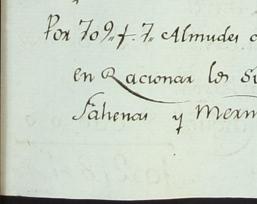 Por 709„ f. 7„ Almudes
en Racionar los
Fahenas y Merm